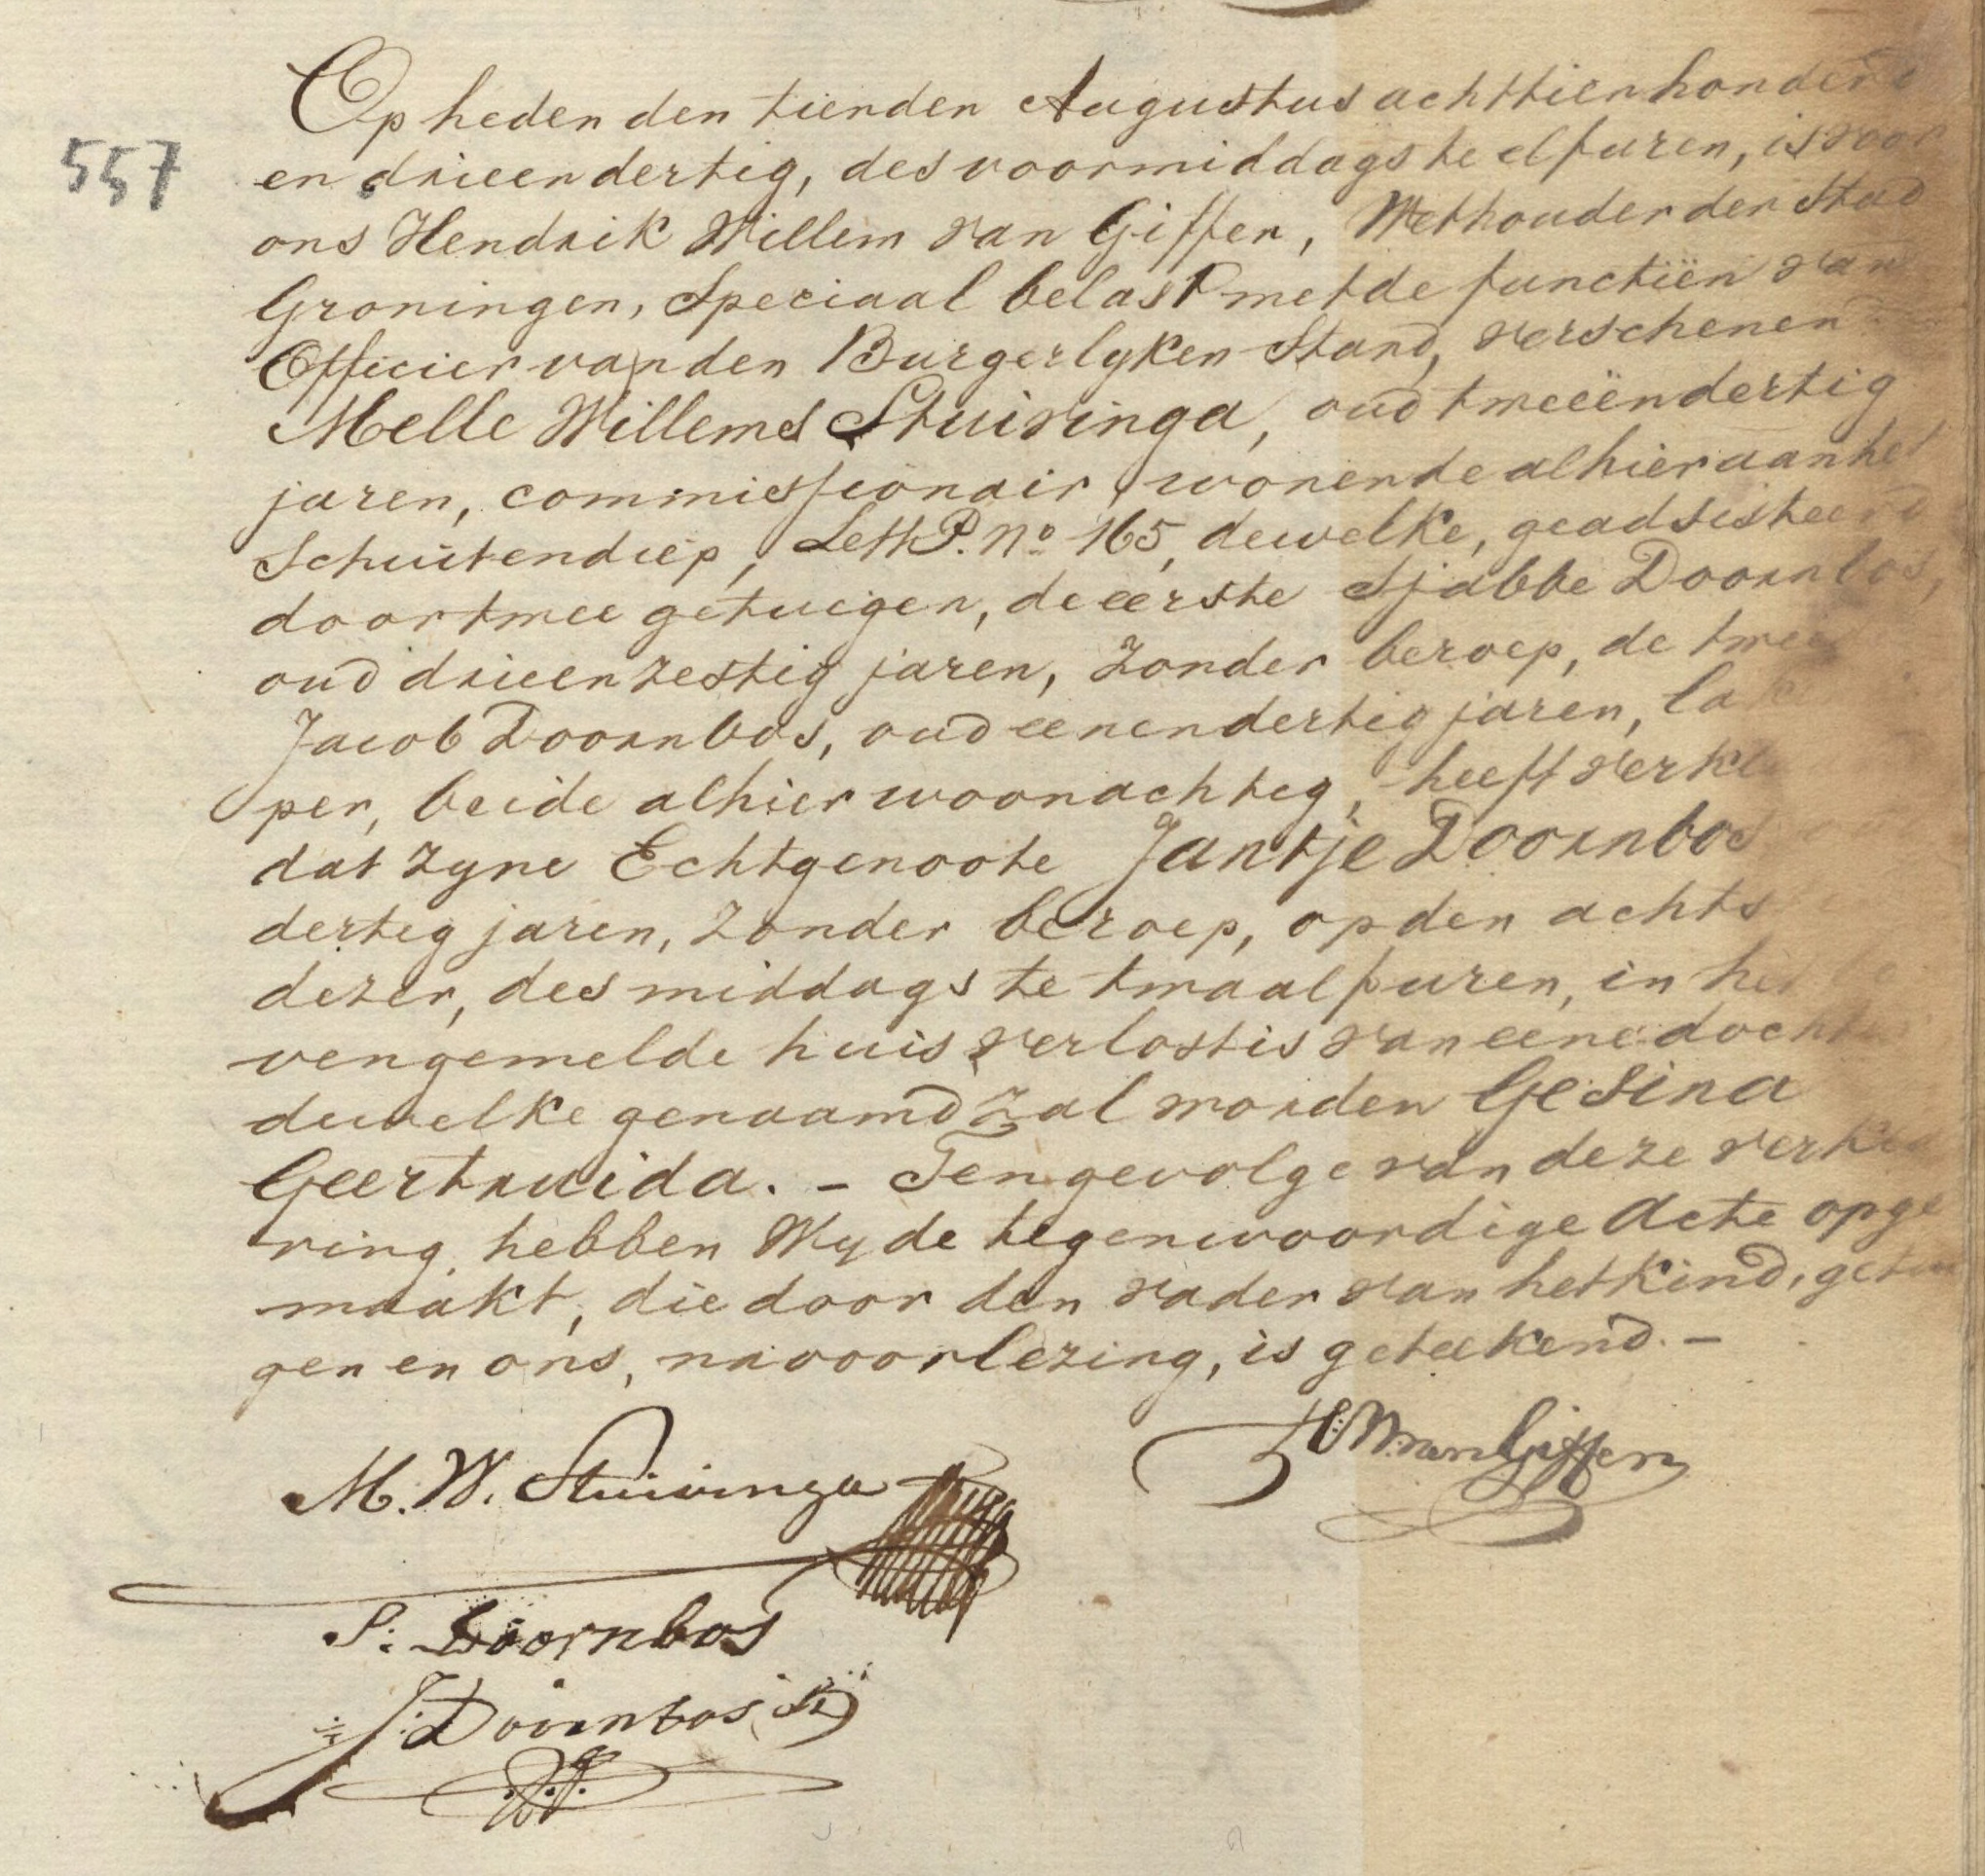 Op heden den tienden Augustus achttienhonderd
557
en drieendertig, des voormiddags te elf uren, is voor
ons Hendrik Willem van Giffen, Wethouder der Stad
Groningen, Speciaal belast met de functiën van
Officier van den Burgerlyken Stand, verschenen
Melle Willems Stuivinga, oud tweeëndertig
jaren, commissionair, wonende alhier aan het
Schuitendiep, Lett P. No 165, dewelke, geadsisteerd
door twee getuigen, de eerste Sjabbe Doornbos,
oud drieenzestig jaren, zonder beroep, de twee
Jacob Doornbos, oud eenendertig jaren, la
per, beide alhier woonachtig, heeft verkla
dat zyne Echtgenoote Jantje Doornbos
dertig jaren, zonder beroep, op den achts
dezer, des middags te twaalf uren, in het bo
vengemelde huis verlost is van eene dochter
dewelke genaamd zal worden Gesina
Geertruida. - Ten gevolge van deze verkla
ring, hebben Wy de tegenwoordige Acte opge
maakt, die door den vader van het kind, getui
gen en ons, na voorlezing, is geteekend. -
H: W: van Giffen
M. W. Stuivinga
S: Doornbos
J: Doornbos Sz